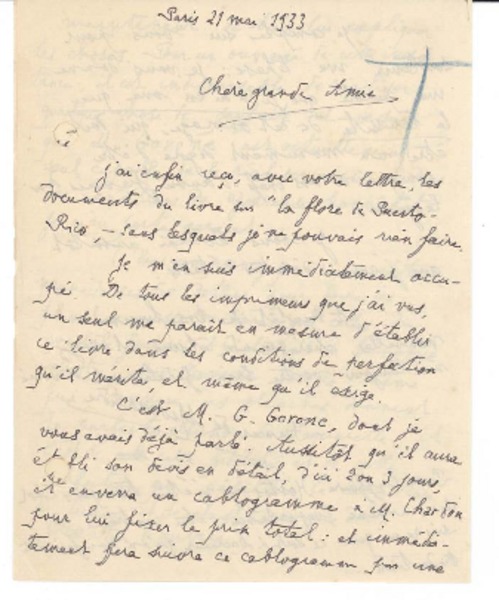 Paris 21 mai 1933
Chère grande Amie
j'ai enfin reçu, avec votre lettre, les
documents du livre sur "la flore de Puerto-
Rico, — sans lesquels je ne pouvais rien faire.
Je m'en suis immédiatement occu-
pé. De tous les imprimeurs que j'ai vus,
un seul me paraît en mesure d'établir
ce livre dans les conditions de perfection
qu'il mérite, et même qu'il exige.
C'est M. G. dont je
vous avais déjà parlé. Aussitôt qu'il aura
établi son devis en détail, d'ici 2 ou 3 jours,
enverra un cablogramme à M. Chardon
pour lui fixer le prix total : et immédia-
tement fera suivre ce cablogramme par une